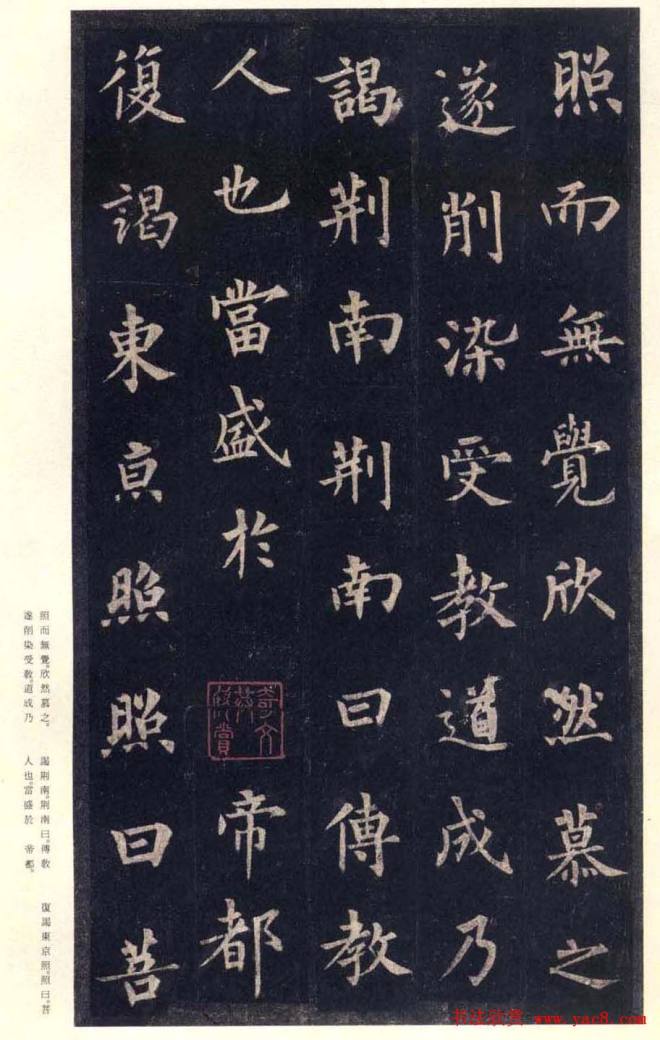 照而無覺欣然慕之
遂削染受教道成乃
謁荆南荆南曰傳教
人也當盛於帝都
復謁東京照照曰菩
照而無覺。欣然慕之。
遂削染受教。道成乃
謁荆南。荆南曰。傳教
人也。當盛於　帝都。
復謁東京照。照曰。菩
书法欣赏 www.yac8.com